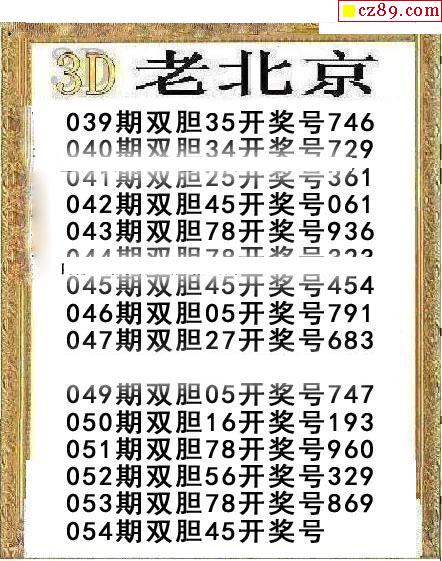 cz89.com
3D 老北京
039期双胆35开奖号746
040期双胆34开奖号729
041期双胆25开奖号361
042期双胆45开奖号061
043期双胆78开奖号936
044期双胆78开奖号323
045期双胆45开奖号454
046期双胆05开奖号791
047期双胆27开奖号683
049期双胆05开奖号747
050期双胆16开奖号193
051期双胆78开奖号960
052期双胆56开奖号329
053期双胆78开奖号869
054期双胆45开奖号